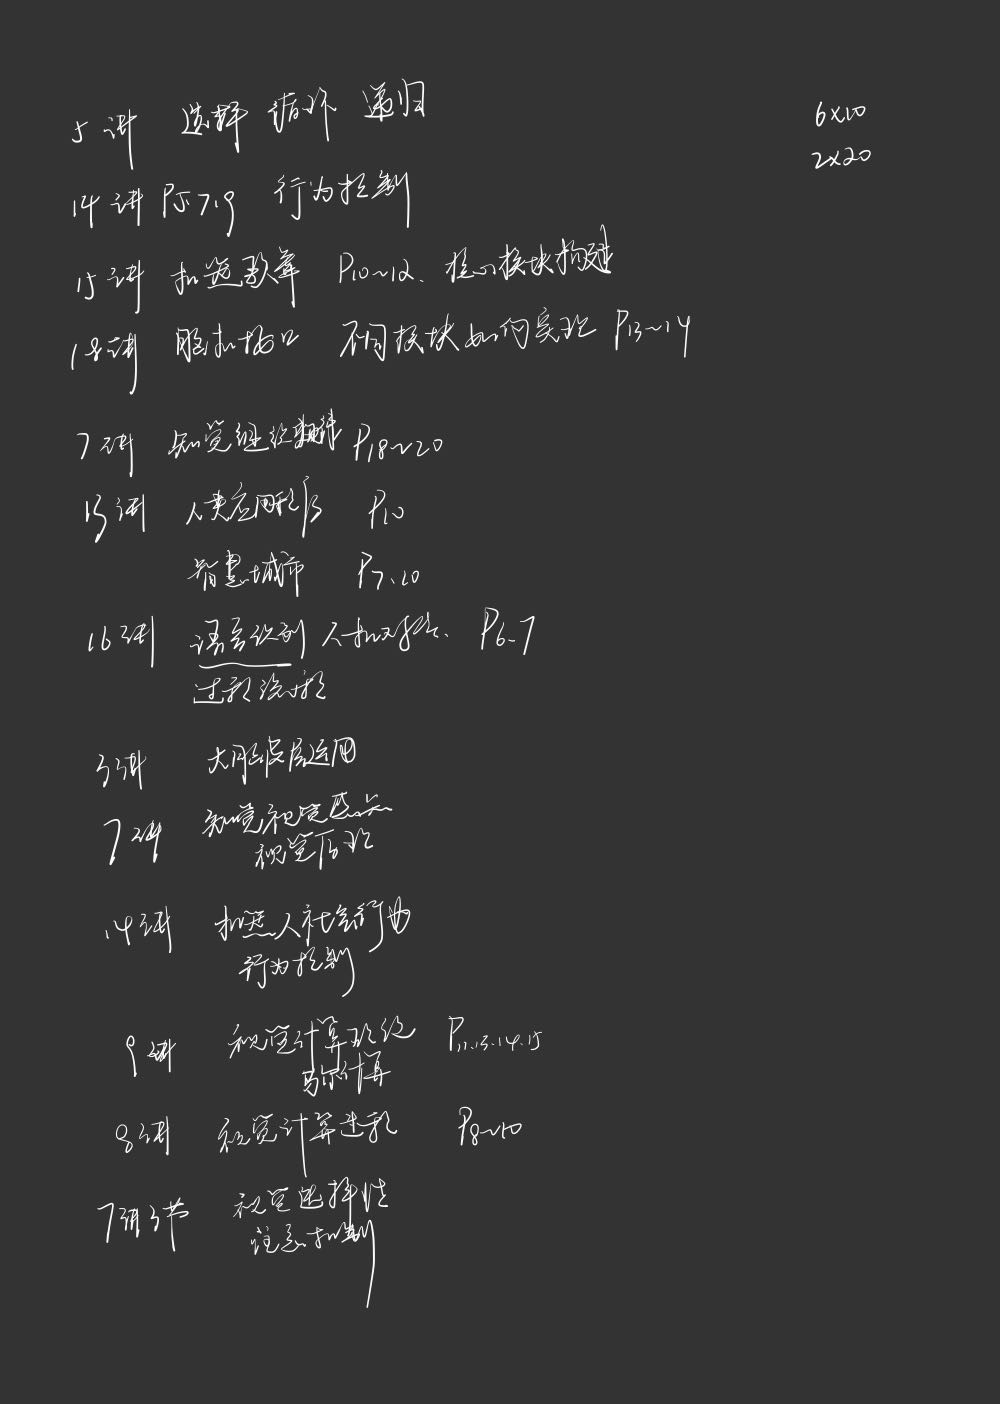 5讲 选择 循环 递归
6×10
2×20
14讲 P5.7.9 行为控制
15讲 机器歌舞 P10~12、核心模块构建
18讲 脑机接口 不同模块如何实现 P13~14
7讲 知觉组织 P18~20
13讲 人类应用 P10
智慧城市 P7.10
16讲 语言识别 人机对话、P6-7
过程
3讲 大脑 运用
7讲 知觉视觉
视觉
14讲 机器人社会行为
行为控制
9讲 视觉计算理论 P11.13.14.15
马尔计算
8讲 视觉计算过程 P8~10
7讲3节 视觉选择性
注意机制